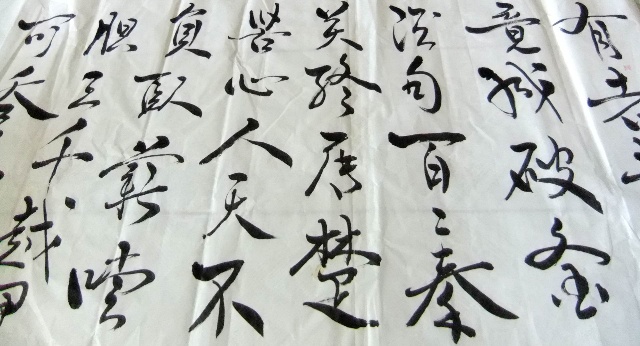 有者
竟成破釜
沉舟百二秦
关终属楚
苦心人天不
負臥薪嚐
胆三千越甲
可吞